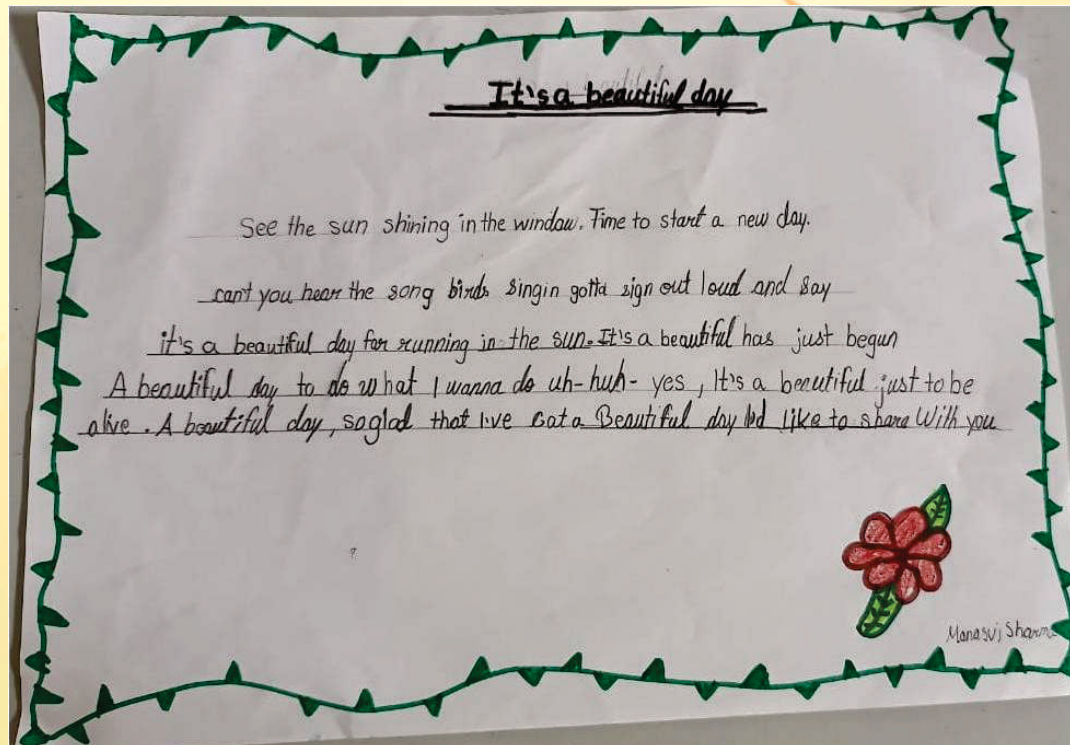 It's a beautiful day
See the sun shining in the window. Time to start a new day.
can't you hear the song birds singin gotta sign out loud and say
it's a beautiful day for running in the sun. It's a beautiful has just begun
A beautiful day to do what I wanna do uh-huh- yes, It's a beautiful just to be
alive. A beautiful day, so glad that I've Gota Beautiful day I'd like to share With you
Manasvi Sharma